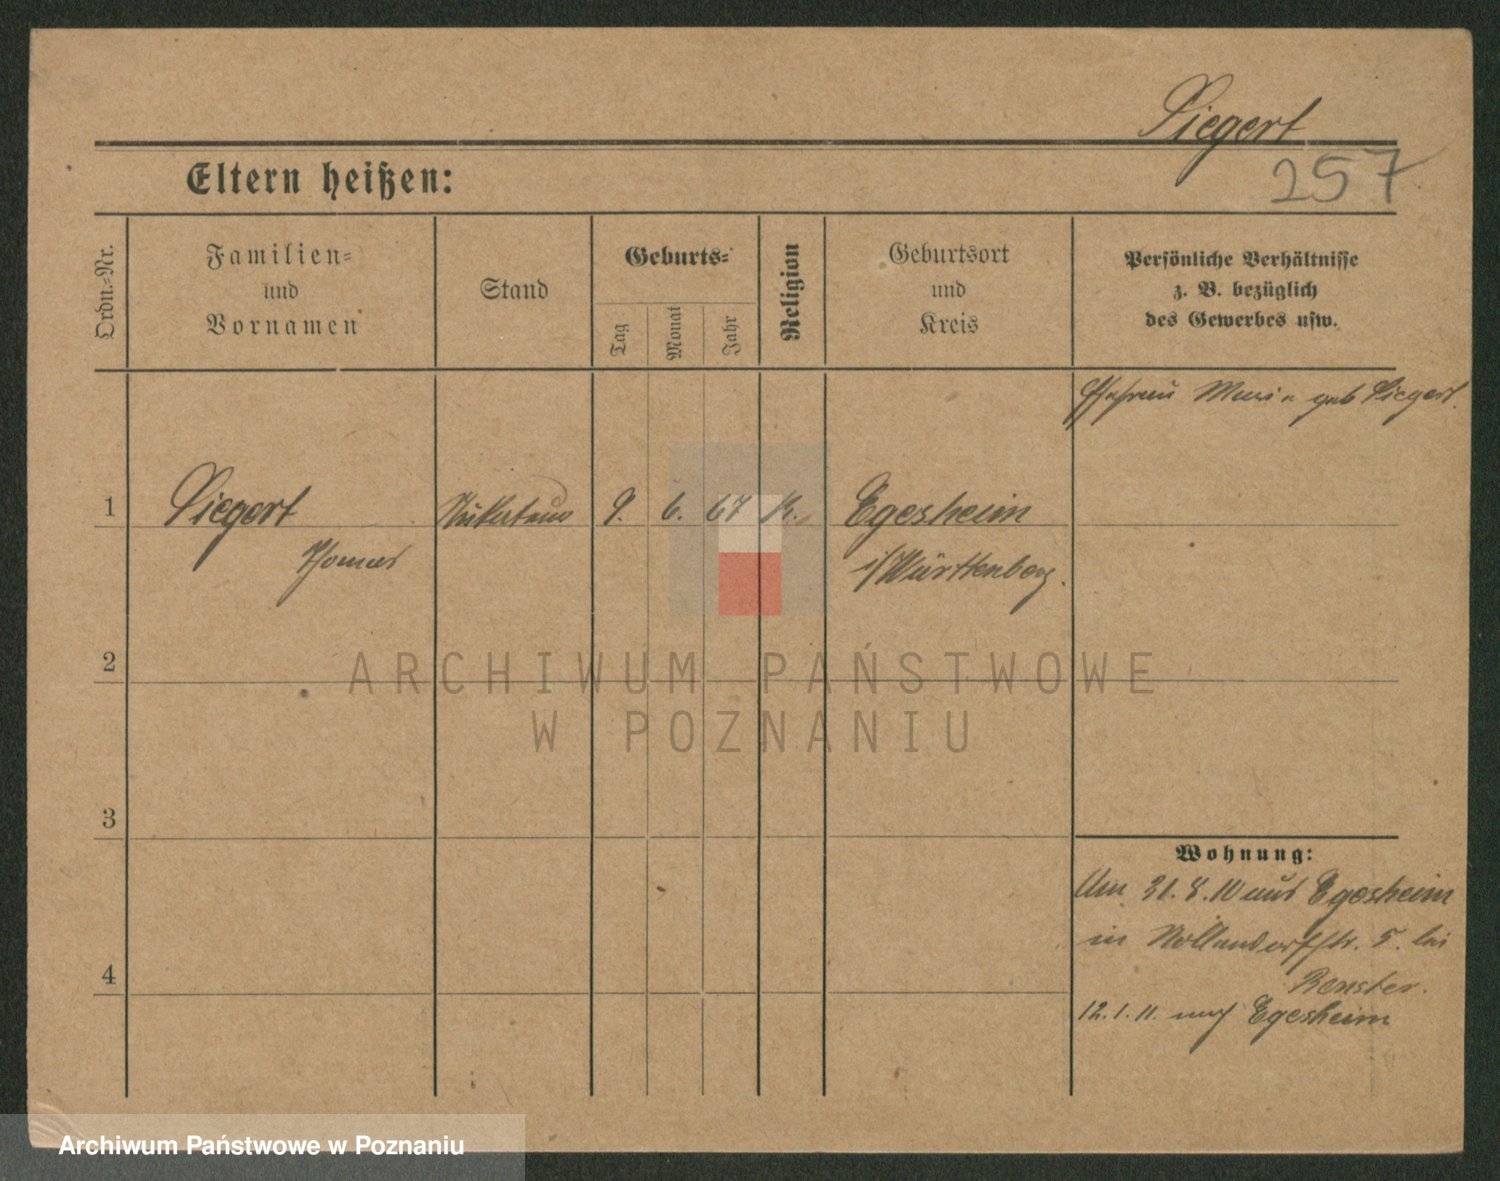 Siegert
257
Eltern heißen:
Ordn.-Nr.
Familien-
und
Vornamen
Stand
Geburts-
Tag
Monat
Jahr
Religion
Geburtsort
und
Kreis
Persönliche Verhältnisse
z. B. bezüglich
des Gewerbes usw.
Ehefrau Maria geb Siegert.
1
Siegert
9. 6. 67 K.
Egesheim
Thomas
i/Württenberg.
2
ARCHIWUM PAŃSTWOWE
W POZNANIU
3
Wohnung:
Am 31. 8. 10 aus Egesheim
in Nollendorfstr. 5. bei
4
Renster.
12. 1. 11. nach Egesheim
Archiwum Państwowe w Poznaniu